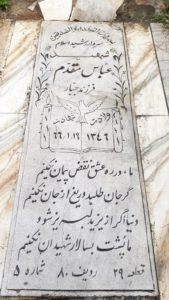 سردار رشید اسلام
شهید
عباس متقدم
فرزند جبار
ولادت شهادت
۱۳۴۶ ۶۶/۱/۱۹
ما در ره عشق نقض پیمان نکنیم
گر جان طلبد دریغ از جان نکنیم
دنیا اگر از یزید لبریز شود
ما پشت به سالار شهیدان نکنیم
قطعه ۲۹ ردیف ۸۰ شماره ۵